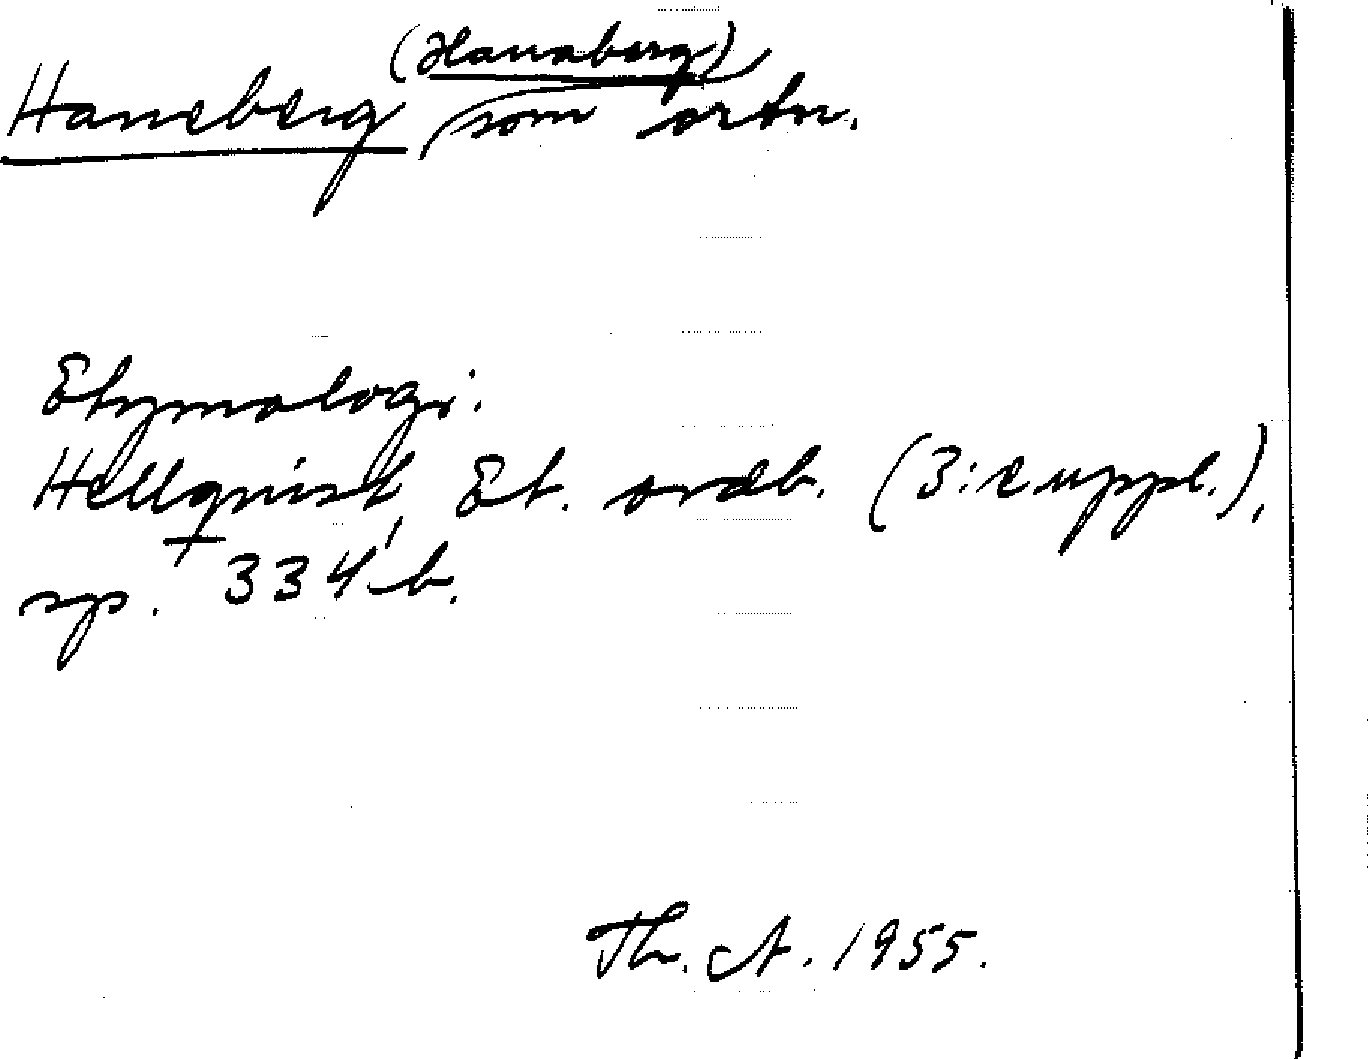 (Hanaberg)
Haneberg som ortn.
Etymologi:
Hellquist, Et. ordb. (3:e uppl.),
sp. 334 b.
Th. A. 1955.